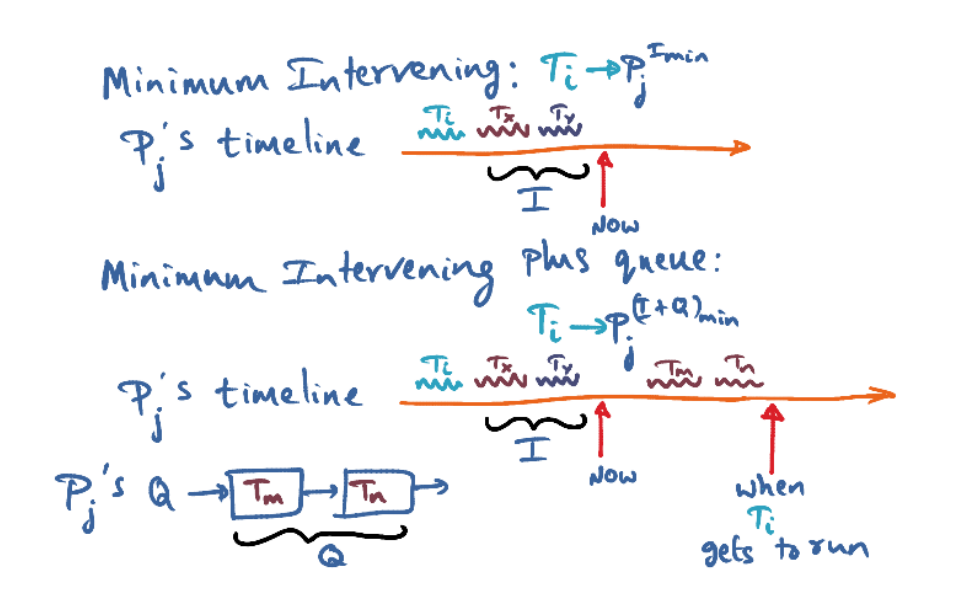 Minimum Intervening: Ti → Pj^Imin
Pj's timeline
Ti Tx Ty
I
NOW
Minimum Intervening plus queue:
Ti → Pj^(I+Q)min
Pj's timeline
Ti Tx Ty Tm Tn
I
NOW
when
Ti
gets to run
Pj's Q → Tm → Tn →
Q